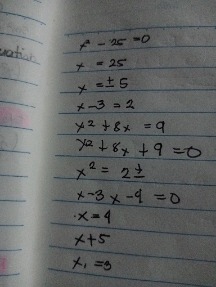 x² - 25 = 0
x = 25
x = ± 5
x - 3 = 2
x² + 8x = 9
x² + 8x + 9 = 0
x² = 2 ±
x - 3x - 4 = 0
x = 4
x + 5
x₁ = 3